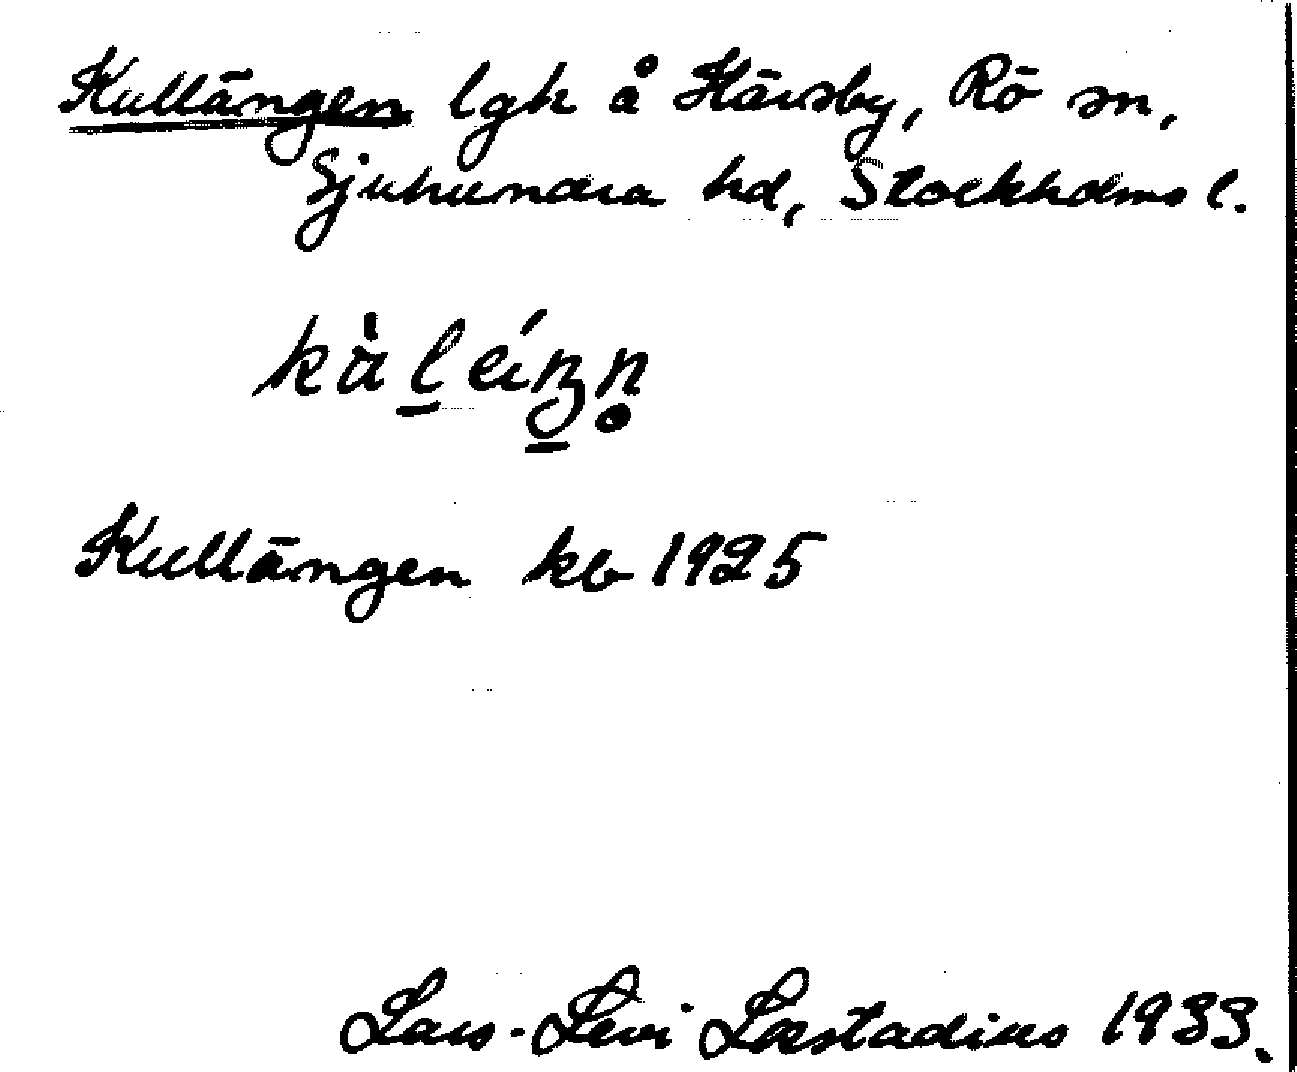 Kullängen lgh å Härsby, Rö sn,
Sjuhundra hd, Stockholms l.
Kullängen kb 1925
Lars-Levi Læstadius 1933.